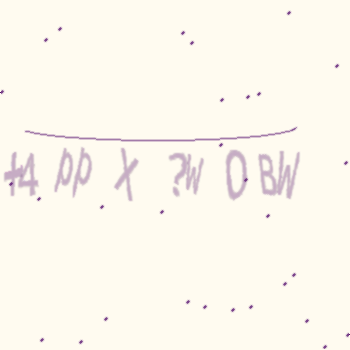 +4 pp X ?W O BW